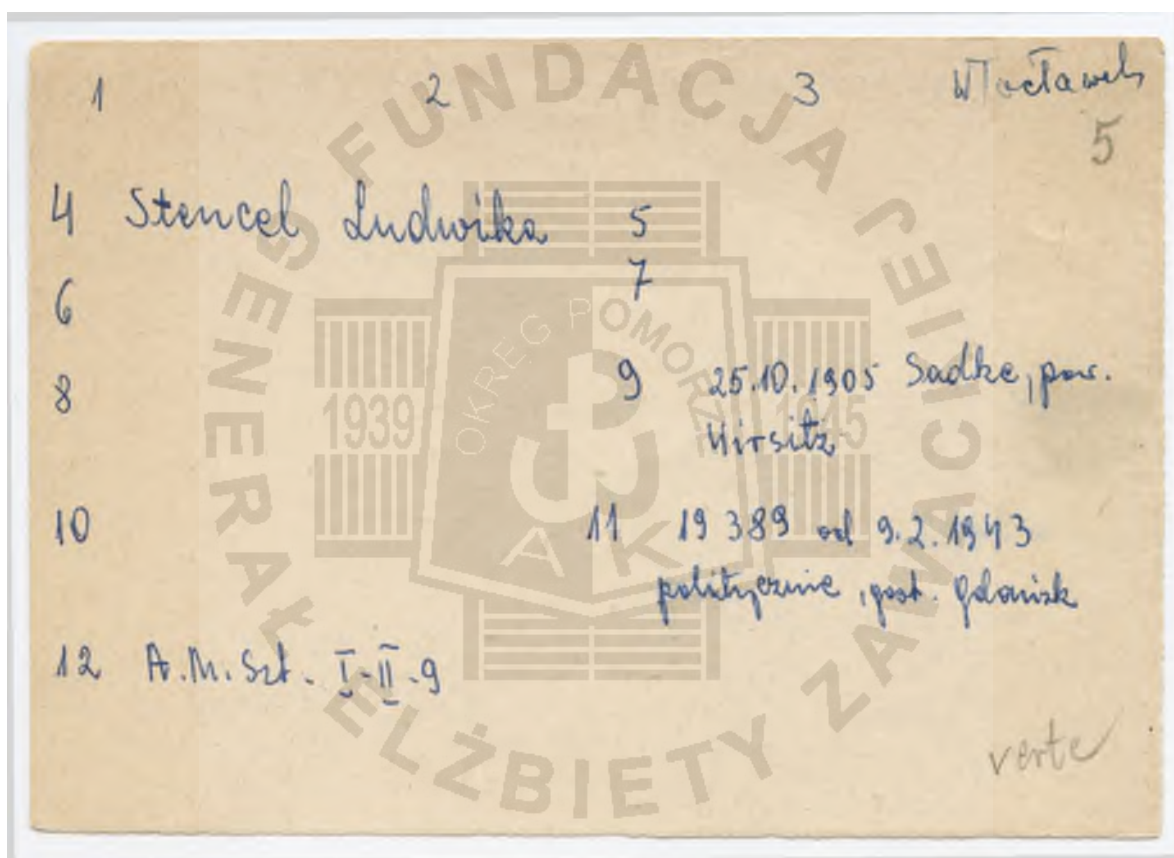 1 2 3 Włocławek
5
4 Stencel Ludwika 5
6 7
8 9 25.10.1905 Sadke, pow.
Wirsitz
10 11 19 389 od 9.2.1943
politycznie, gest. Gdańsk
12 A.M.Szt. - I-II-9
verte
FUNDACJA GENERAŁ ELŻBIETY ZAWACKIEJ
OKRĘG POMORZE
1939 1945
AK